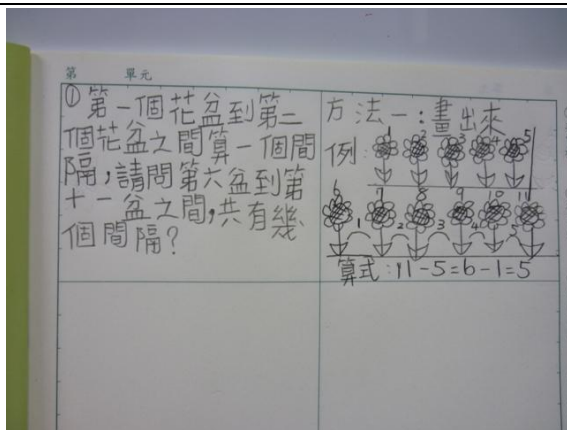 第 單元
①第一個花盆到第二
個花盆之間算一個間
隔,請問第六盆到第
十一盆之間,共有幾
個間隔?
方法一:畫出來
例:
1 2 3 4 5
6 7 8 9 10 11
1 2 3 4 5
算式:11-5=6-1=5